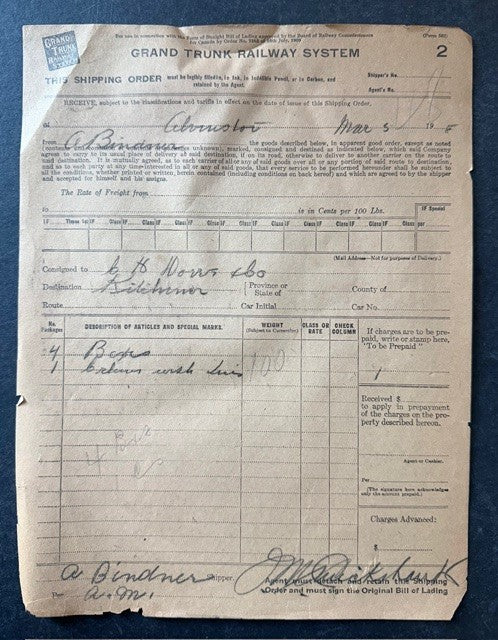 GRAND
TRUNK
RAILWAY
SYSTEM
For use in connection with the Form of Straight Bill of Lading approved by the Board of Railway Commissioners
for Canada by Order No. of 15th July, 1909
(Form 502)
GRAND TRUNK RAILWAY SYSTEM 2
THIS SHIPPING ORDER must be legibly filled in, in Ink, in Indelible Pencil, or in Carbon, and
retained by the Agent.
Shipper's No.
Agent's No.
RECEIVE, subject to the classifications and tariffs in effect on the date of issue of this Shipping Order,
at Alvinston Mar 5 19
from A Bindner the goods described below, in apparent good order, except as noted
(contents and condition of contents of packages unknown), marked, consigned and destined as indicated below, which said Company
agrees to carry to its usual place of delivery at said destination, if on its road, otherwise to deliver to another carrier on the route to
said destination. It is mutually agreed, as to each carrier of all or any of said goods over all or any portion of said route to destination,
and as to each party at any time interested in all or any of said goods, that every service to be performed hereunder shall be subject to
all the conditions, whether printed or written, herein contained (including conditions on back hereof) and which are agreed to by the shipper
and accepted for himself and his assigns.
The Rate of Freight from
to is in Cents per 100 Lbs.
IF Special
IF Times 1st IF Class IF Class IF Class IF Class IF Class IF Class IF Class IF Class per
(Mail Address—Not for purposes of Delivery.)
Consigned to C H & Co
Destination Kitchener Province or State of County of
Route Car Initial Car No.
No. Packages DESCRIPTION OF ARTICLES AND SPECIAL MARKS. WEIGHT (Subject to Correction) CLASS OR RATE CHECK COLUMN
If charges are to be pre-
paid, write or stamp here,
"To be Prepaid"
4 Boxes
1 100
Received $
to apply in prepayment
of the charges on the pro-
perty described hereon.
Agent or Cashier.
Per
(The signature here acknowledges
only the amount prepaid.)
Charges Advanced:
$
A Bindner Shipper.
Per A. M.
Agent must detach and retain this Shipping
Order and must sign the Original Bill of Lading